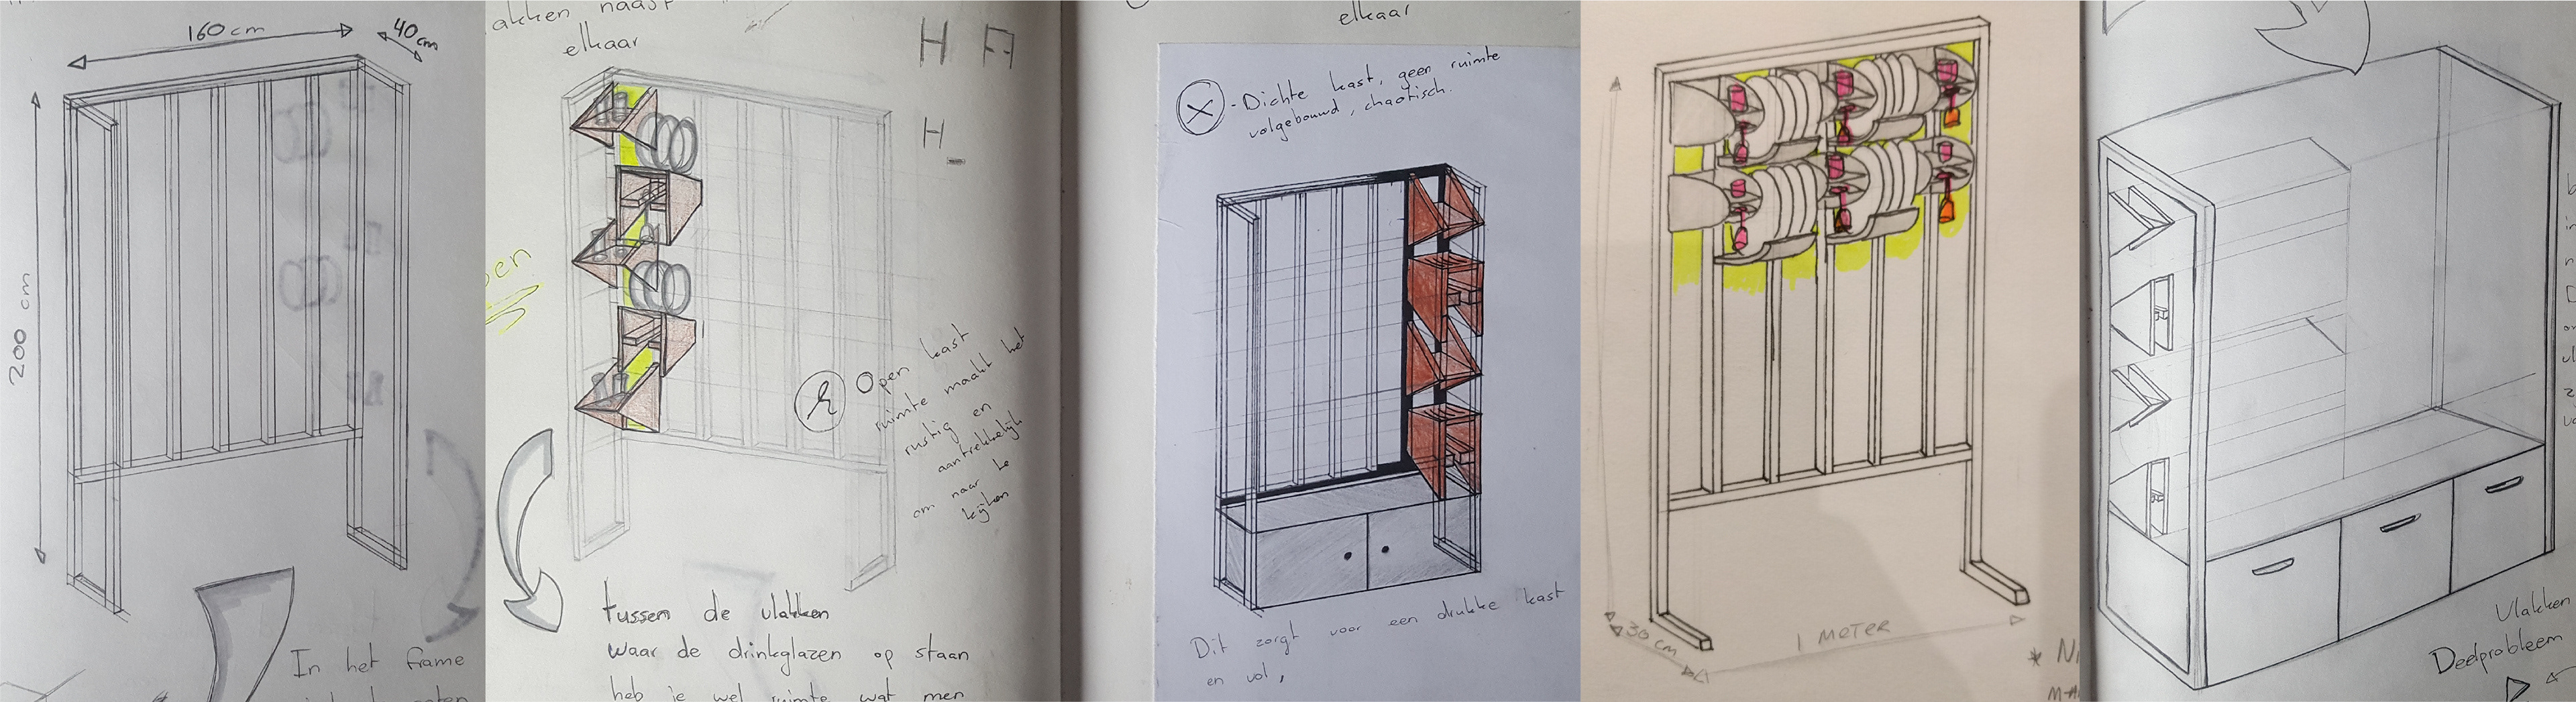 160 cm
40 cm
200 cm
In het frame
vlakken naast
elkaar
Open kast
ruimte maakt het
rustig en
aantrekkelijk
om naar te
kijken
tussen de vlakken
waar de drinkglazen op staan
heb je wel ruimte wat men
elkaar
- Dichte kast, geen ruimte
volgebouwd, chaotisch.
Dit zorgt voor een drukke kast
en vol,
30 cm
1 METER
Vlakken
Deelprobleem